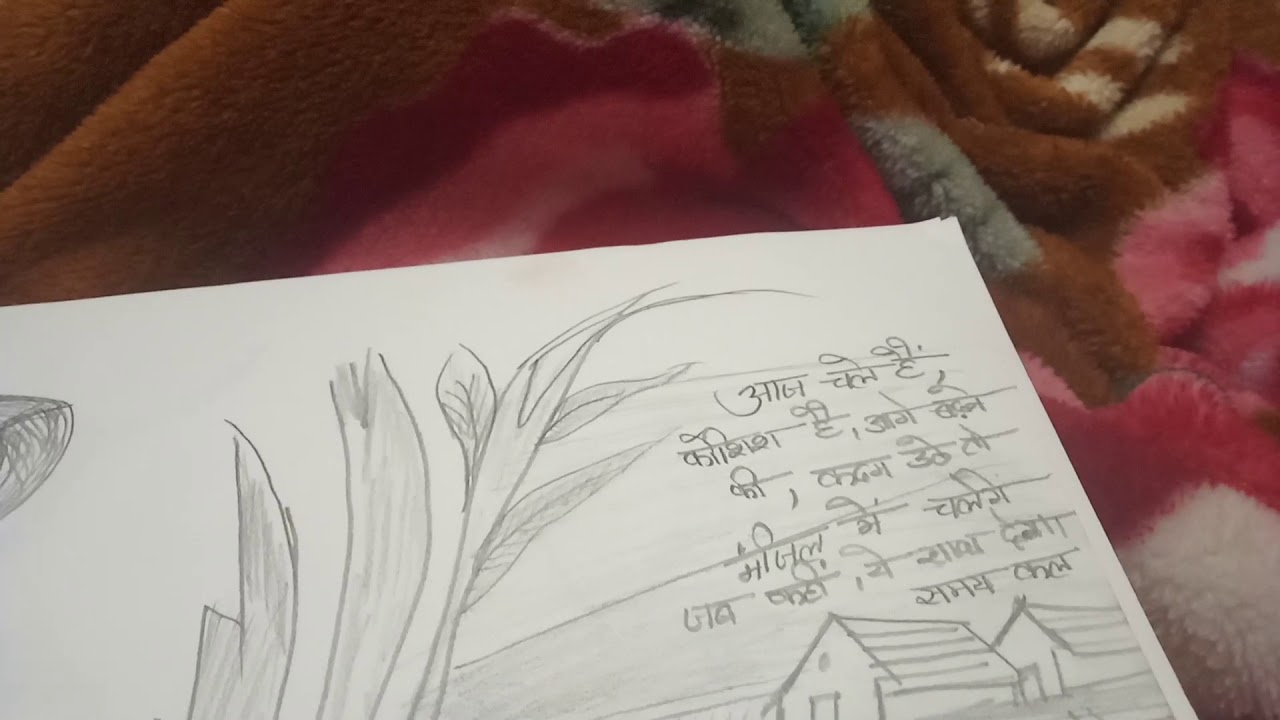 आज चले हैं,
कोशिश है, आगे बढ़ने
की, कदम उठे तो
मंजिल में चलेंगे
जब कहीं, ये साथ देगा
समय कल